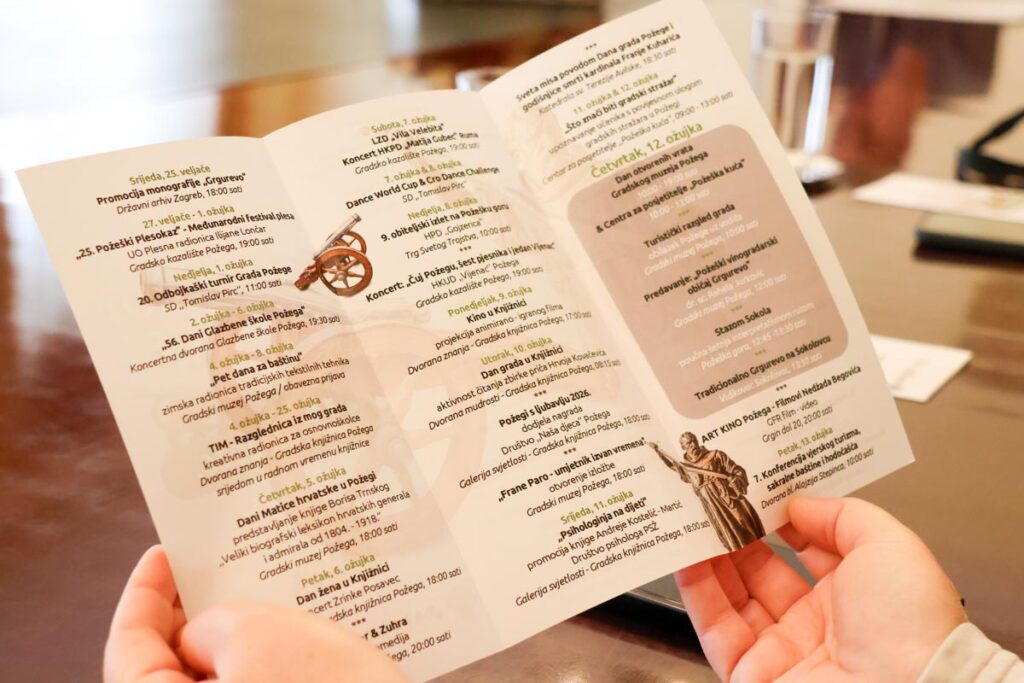 Srijeda, 25. veljače
Promocija monografije „Grgurevo“
Državni arhiv Zagreb, 18:00 sati
27. veljače - 1. ožujka
„25. Požeški Plesokaz“ - Međunarodni festival plesa
UO Plesna radionica Ilijane Lončar
Gradsko kazalište Požega, 19:00 sati
Nedjelja, 1. ožujka
20. Odbojkaški turnir Grada Požege
SD „Tomislav Pirc“, 11:00 sati
2. ožujka - 6. ožujka
„56. Dani Glazbene škole Požega“
Koncertna dvorana Glazbene škole Požega, 19:30 sati
4. ožujka - 8. ožujka
„Pet dana za baštinu“
zimska radionica tradicijskih tekstilnih tehnika
Gradski muzej Požega / obavezna prijava
4. ožujka - 25. ožujka
TIM - Razglednica iz mog grada
kreativna radionica za osnovnoškolce
Dvorana znanja - Gradska knjižnica Požega
srijedom u radnom vremenu knjižnice
Četvrtak, 5. ožujka
Dani Matice hrvatske u Požegi
predstavljanje knjige Borisa Trnskog
„Veliki biografski leksikon hrvatskih generala
i admirala od 1804. - 1918.“
Gradski muzej Požega, 18:00 sati
Petak, 6. ožujka
Dan žena u Knjižnici
cert Zrinke Posavec
knjižnica Požega, 18:00 sati
***
& Zuhra
omedija
Požega, 20:00 sati
Subota, 7. ožujka
LZD „Vila Velebita“
Koncert HKPD „Matija Gubec“ Ruma
Gradsko kazalište Požega, 19:00 sati
7. ožujka & 8. ožujka
Dance World Cup & Cro Dance Challenge
SD „Tomislav Pirc“
Nedjelja, 8. ožujka
9. obiteljski izlet na Požešku goru
HPD „Gojzerica“
Trg Svetog Trojstva, 10:00 sati
***
Koncert: „Čuj Požegu, šest pjesnika i jedan Vijenac“
HKUD „Vijenac“ Požega
Gradsko kazalište Požega, 19:00 sati
Ponedjeljak, 9. ožujka
Kino u Knjižnici
projekcija animirano - igranog filma
Dvorana znanja - Gradska knjižnica Požega, 17:00 sati
Utorak, 10. ožujka
Dan grada u Knjižnici
aktivnost čitanja zbirke priča Hrvoja Kovačevića
Dvorana mudrosti - Gradska knjižnica Požega, 08:15 sati
***
Požegi s ljubavlju 2026.
dodjela nagrada
Društvo „Naša djeca“ Požega
Galerija svjetlosti - Gradska knjižnica Požega, 18:00 sati
***
„Frane Paro - umjetnik izvan vremena“
otvorenje izložbe
Gradski muzej Požega, 18:00 sati
Srijeda, 11. ožujka
„Psihologinja na dijeti“
promocija knjige Andreje Kostelić - Martić
Društvo psihologa PSŽ
Galerija svjetlosti - Gradska knjižnica Požega, 18:00 sati
***
Sveta misa povodom Dana grada Požege i
godišnjice smrti kardinala Franje Kuharića
Katedrala sv. Terezije Avilske, 18:30 sati
11. ožujka & 12. ožujka
„Što znači biti gradski stražar“
upoznavanje učenika s povijesnom ulogom
gradskih stražara u Požegi
Centar za posjetitelje „Požeška kuća“, 09:00 - 13:00 sati
Četvrtak, 12. ožujka
Dan otvorenih vrata
Gradskog muzeja Požega
& Centra za posjetitelje „Požeška kuća“
10:00 - 13:00 sati
***
Turistički razgled grada
Gradski muzej Požega, 10:00 sati
***
Predavanje: „Požeški vinogradarski
običaj Grgurevo“
Gradski muzej Požega, 12:00 sati
***
Stazom Sokola
Požeška gora, 12:45 - 18:30 sati
***
Tradicionalno Grgurevo na Sokolovcu
Vidikovac Sokolovac, 18:30 sati
***
ART KINO Požega - Filmovi Nedžada Begovića
GFR Film - video
Grgin dol 20, 20:00 sati
Petak, 13. ožujka
7. Konferencija vjerskog turizma,
sakralne baštine i hodočašća
Dvorana bl. Alojzija Stepinca, 10:00 sati